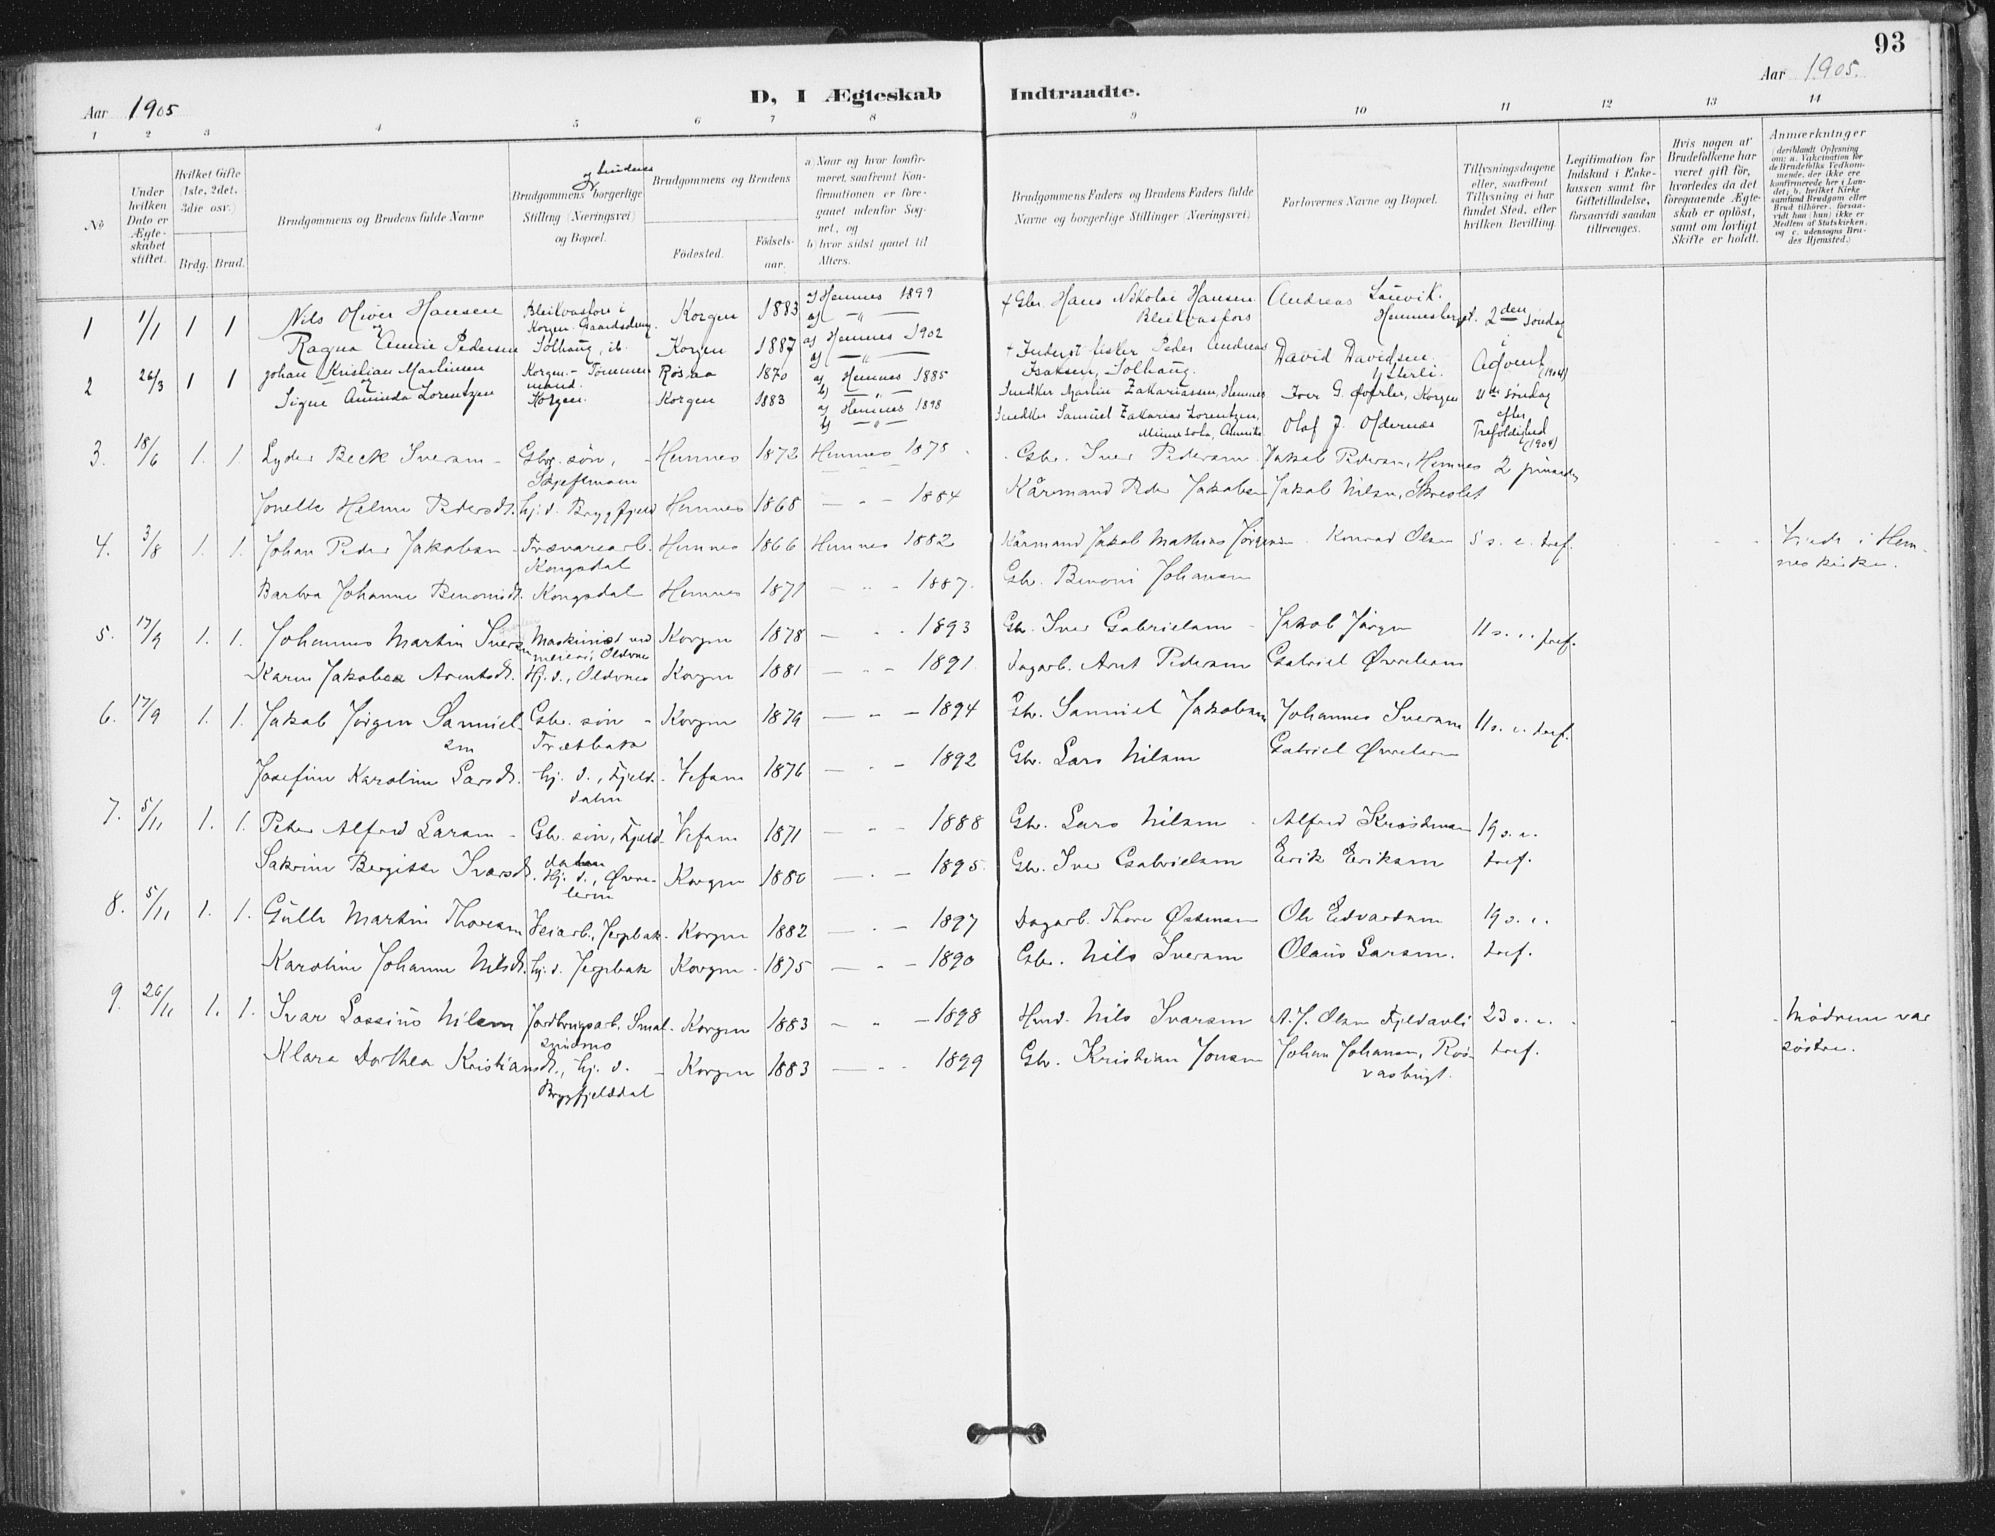 93
Aar 1905
D, I Ægteskab Indtraadte.
Aar 1905.
1 2 3 4 5 6 7 8 9 10 11 12 13 14
No
Under hvilken Dato er Ægteskabet stiftet.
Hvilket Gifte (1ste, 2det, 3die osv.)
Brdg. Brud.
Brudgommens og Brudens fulde Navne
Brudgommens og Brudens borgerlige Stilling (Næringsvei) og Bopæl.
Brudgommens og Brudens
Födested.
Födselsaar.
a) Naar og hvor konfirmeret, saafremt Konfirmationen er foregaaet udenfor Sognet, og
b) hvor sidst gaaet til Alters.
Brudgommens Faders og Brudens Faders fulde Navne og borgerlige Stillinger (Næringsvei)
Forlovernes Navne og Bopæl.
Tillysningsdagene eller, saafremt Tillysning ei har fundet Sted, efter hvilken Bevilling.
Legitimation for Indskud i Enkekassen samt for Giftetilladelse, forsaavidt saadan tiltrænges.
Hvis nogen af Brudefolkene har været gift för, hvorledes da det foregaaende Ægteskab er oplöst, samt om lovligt Skifte er holdt.
Anmærkninger (deriblandt Oplysning om: a. Vakcination for de Brudefolks Vedkommende, der ikke ere konfirmerede her i Landet; b. hvilket Kirkesamfund Brudgom eller Brud tilhörer, forsaavidt han (hun) ikke er Medlem af Statskirken, og c. udensogns Brudes Hjemsted.)
1 1/1 1 1 Nils Oliver Hansen Bleikvasfors i Korgen. Korgen 1883 a) Hemnes 1899 b) — " — † Gbr. Hans Nikolai Hansen Bleikvasfors Andreas Hemnesberget. 2den søndag
og
Ragna Amie Pedersen Solhaug, ib. Korgen 1887 a) Hemnes 1902 b) — " — † Inderst fisker Peder Andreas Isaksen, Solhaug. David Davidsen i Advent (1904)
2 26/3 1 1 Johan Kristian Martinsen Korgen. - Tømmermand. Røsaa 1870 a) Hemnes 1885 b) — " — Snedker Martin Zakariassen, Hemnes Iver G. Korgen søndag
og
Signe Aminda Lorentzen Korgen. Korgen 1883 a) Hemnes 1898 b) — " — Snedker Samuel Zakarias Lorentzen, Minnesota, Amerika Olaf J. Oldernæs efter Trefoldighed (1904)
3. 18/6 1. 1. Lyder Beck Iversen - Gbr. søn, Hemnes 1872 Hemnes 1878 Gbr. Iver Pedersen Jakob Pedersen, Hemnes 2
Jonette Helene Pedersdt. hj. d. Bryggfjeld Hemnes 1868 — " — 1884 Kårmand Peder Jakobsen Jakob Nilsen,
4. 3/8 1. 1. Johan Peder Jakobsen - Trævarearb. Kongsdal Hemnes 1866 Hemnes 1882 Kårmand Jakob Mathias Jørgensen Konrad Olsen 5 s. e. tref. Viede i Hemnes kirke.
Barbra Johanne Benonisdt. Kongsdal Hemnes 1871 — " — 1887. Gbr. Benoni Johansen
5. 17/9 1. 1. Johannes Martin Iversen Maskinist ved meieri, Oldernes Korgen 1878 — " — 1893 Gbr. Iver Gabrielsen - Jakob Jørgen 11 s. e. tref.
Karen Jakobea Arentsdt. Hj. d., Oldernes Korgen 1881 — " — 1891 Dagarb. Arnt Pedersen Gabriel
6. 17/9 1. 1. Jakob Jørgen Samuelsen Gbr. søn - Tvætbak Korgen 1879 — " — 1894 Gbr. Samuel Jakobsen Johannes Iversen 11 s. e. tref.
Josefine Karoline Larsdt. hj. d., Fjelddalen Vefsen 1876 — " — 1892 Gbr. Lars Nilsen Gabriel
7. 5/11 1. 1. Peder Alfred Larsen - Gbr. søn, Fjelddalen Vefsen 1871 — " — 1888 Gbr. Lars Nilsen - Alfred Kristensen 19 s. e.
Sakrine Bergitte Ivarsdt. Hj. d., Øvreleren Korgen 1880 — " — 1895. Gbr. Iver Gabrielsen Erik Eriksen tref.
8. 5/11 1. 1. Gulle Martin Thoresen Veiarb., Jerpbak. Korgen 1882 — " — 1897 Dagarb. Thore Østensen Ole Edvardsen 19 s. e.
Karoline Johanne Nilsdt. hj. d. Jerpbak Korgen 1875 — " — 1890 Gbr. Nils Iversen Olaus Larsen. tref.
9. 26/11 1. 1. Ivar Lassius Nilsen Jordbrugsarb. Korgen 1883 — " — 1898 Husd. Nils Ivarsen A. J. Olsen Fjeldavli 23 s. e. Mødrene var
Klara Dorthea Kristiansdt., hj. d. - Bryggfjelddal Korgen 1883 — " — 1899 Gbr. Kristian Jonsen Johan Johansen, Røsvasbugt. tref. søstre.